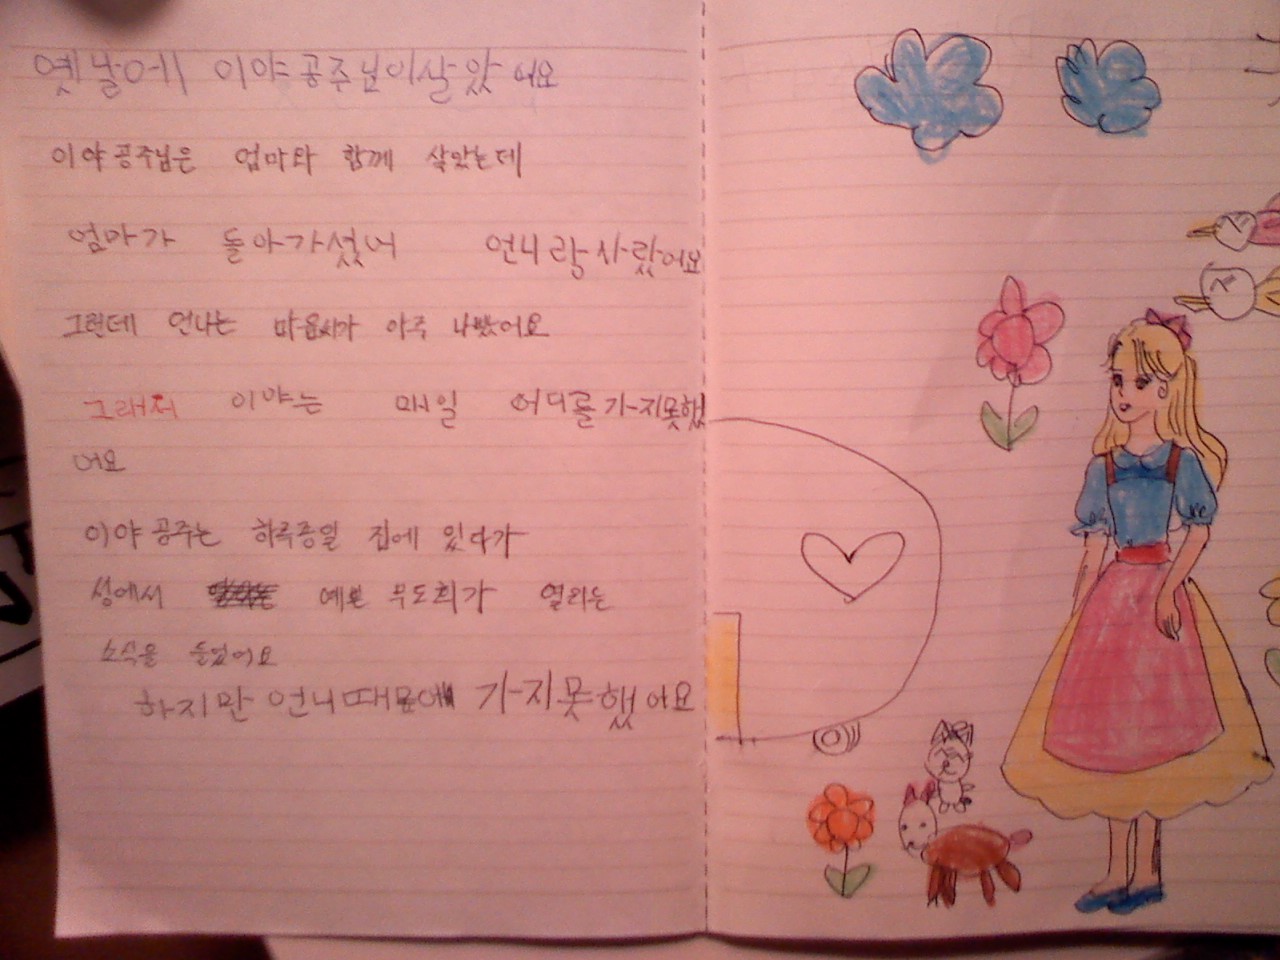 옛날에 이야공주님이살았어요
이야공주님은 엄마와 함께 살았는데
엄마가 돌아가셨어 언니랑사랐어요
그런데 언니는 마음씨가 아주 나빴어요
그래서 이야는 매일 어디를가지못했
어요
이야공주는 하루종일 집에 있다가
성에서 예쁜 무도회가 열리는
소식을 들었어요
하지만 언니때문에 가지못했어요